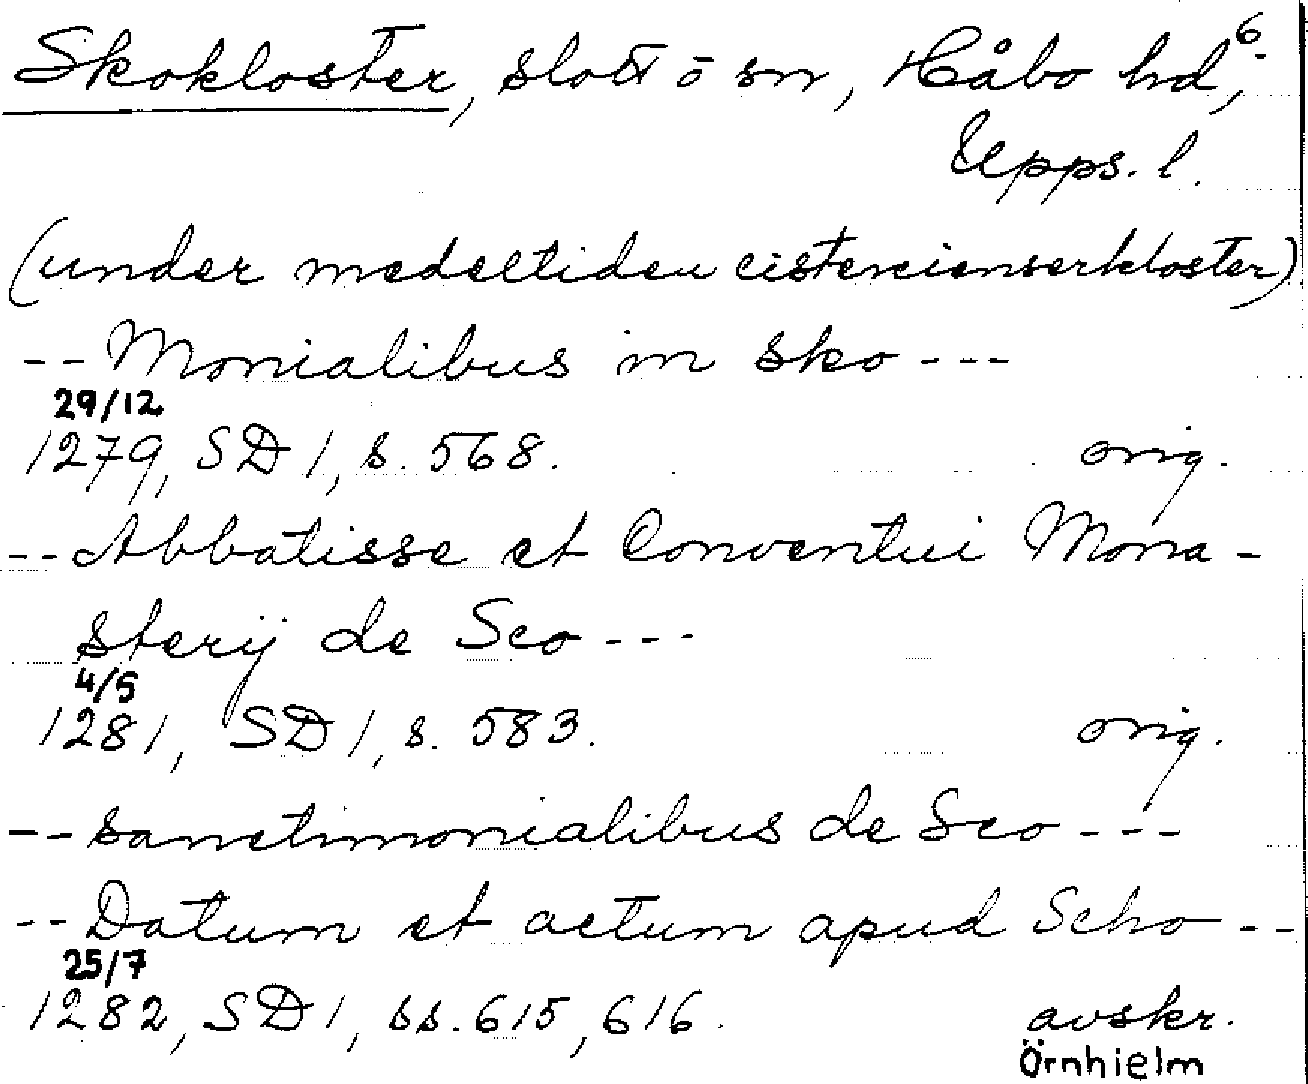 Skokloster, slott o sn, Håbo hd, 6.
Upps. l.
(under medeltiden cistercienserkloster)
-- Monialibus in sko ---
29/12
1279, SD 1, s. 568. orig.
-- Abbatisse et Conventui Mona-
sterij de Sco ---
4/5
1281, SD 1, s. 583. orig.
-- sanctimonialibus de Sco ---
-- Datum et actum apud Scho --
25/7
1282, SD 1, ss. 615, 616. avskr.
Örnhielm